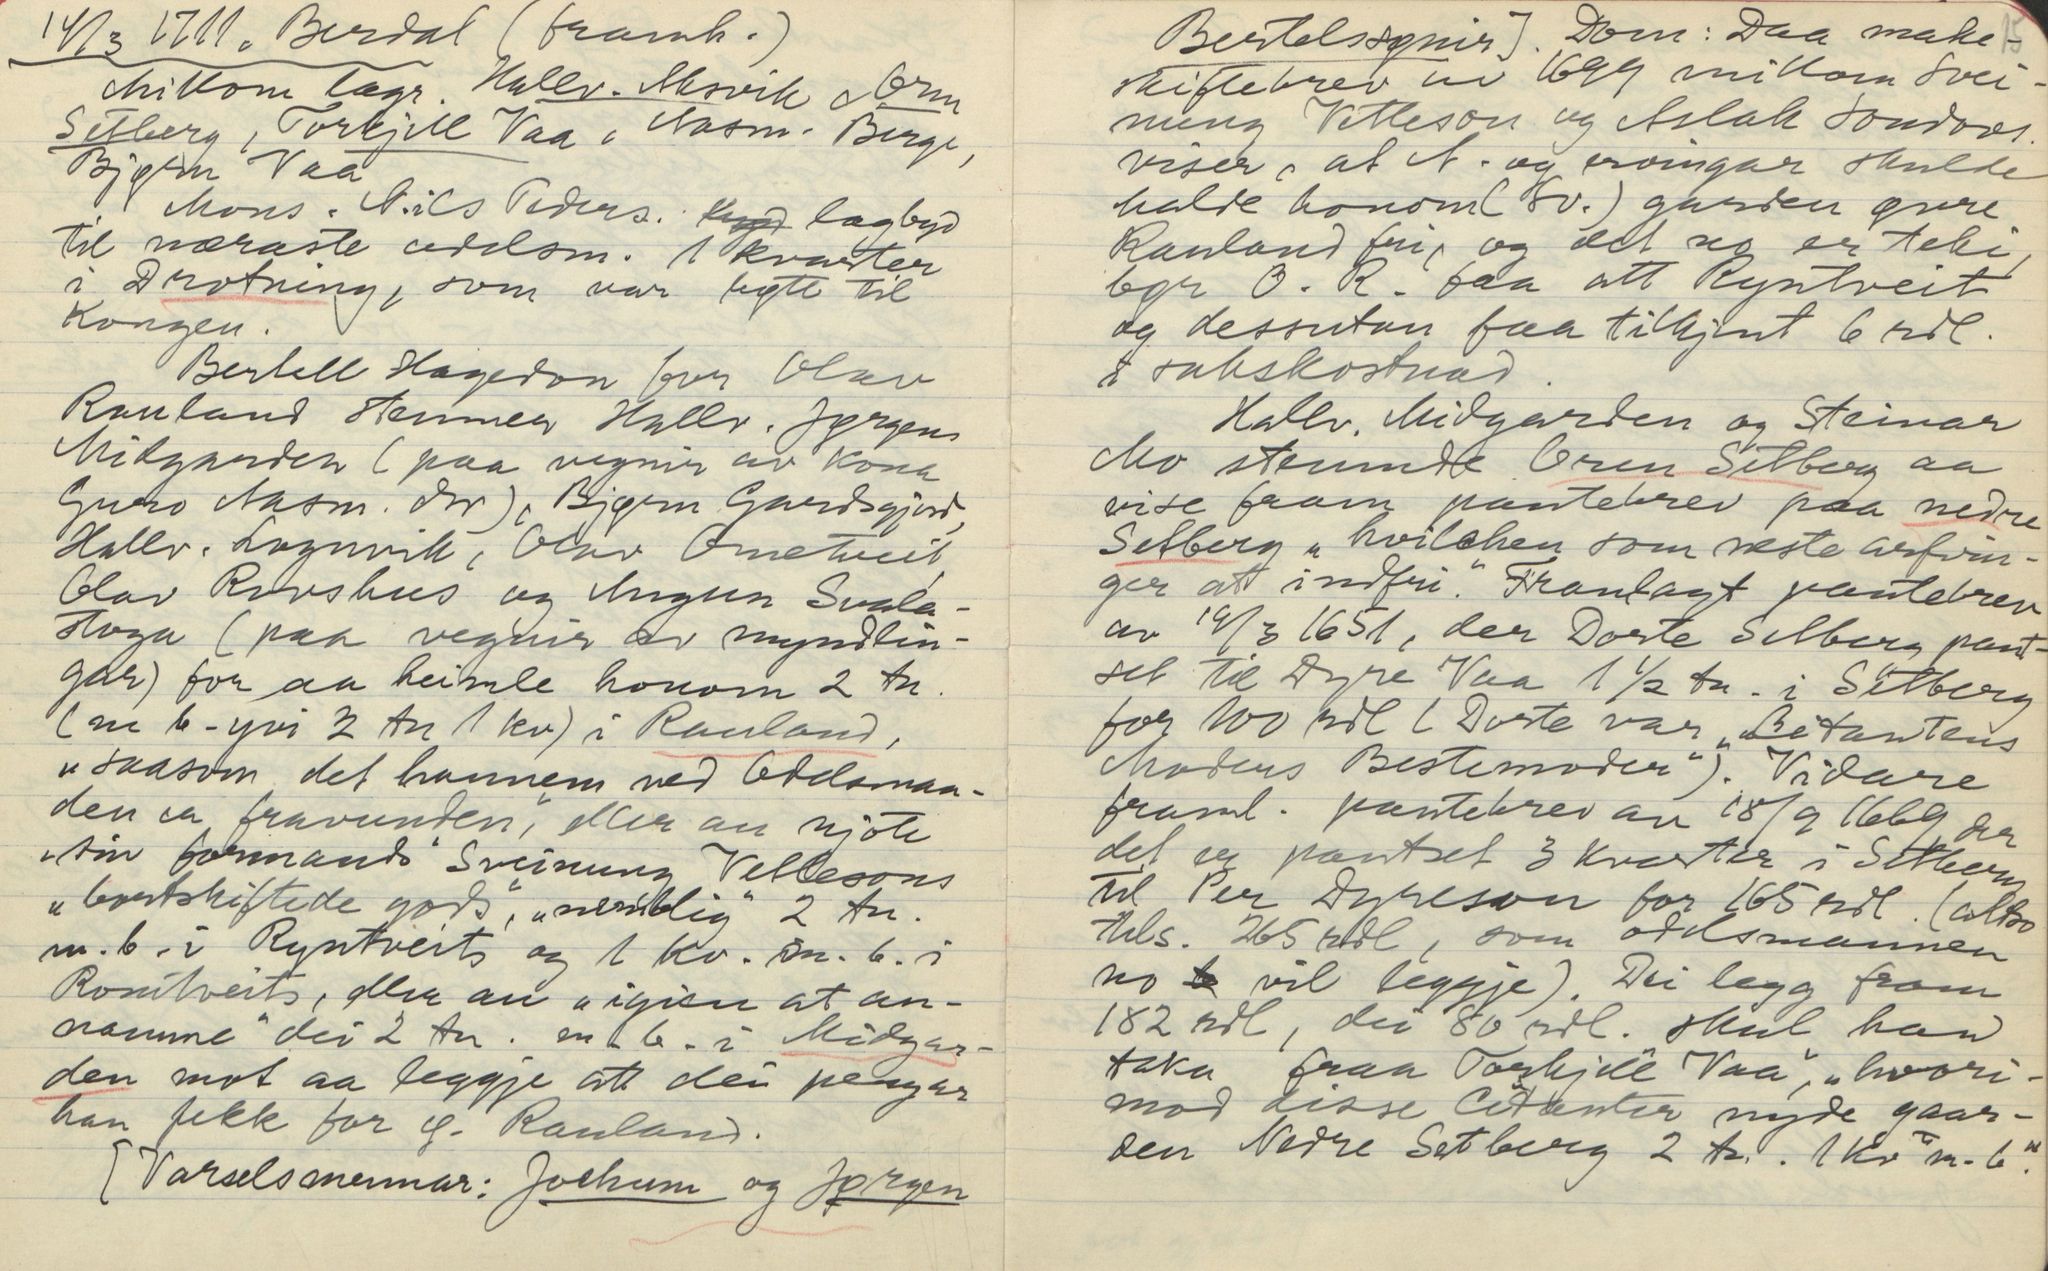 14/3 1711. Berdal (framh.)
Millom lagr. Hallv. Aksvik, Orm
Setberg, Torkjell Vaa, Aasm. Berge,
Bjørn Vaa
Mons. Nils Peders. lagbyd
til næraste odelsm. 1 kvarter
i Drotning, som var bygt til
Kongen.
Bertell Hagedon for Olav
Rauland stemner Hallv. Jørgens
Midgarden (paa vegnir av kona
Guro Aasm. dtr), Bjørn Gardsgjord,
Hallv. Lognvik, Olav Ometveit,
Olav Rovshus og Augun Svala-
stoga (paa vegnir av myndlin-
gar) for aa heimle honom 2 tn.
(m b - yvi 2 tn 1 kv) i Rauland,
"saasom det hannem ved Oddsmaa-
den er fravunden", eller au njote
"sin formands" Sveinung Vetlesons
"bortskiftede gods", "nemblig" 2 tn.
m. b. i Ryntveits og 1 kv. m. b. i
Romtveits, eller au "igien at an-
namme" dei 2 tn. m. b. i Midgar-
den mot aa leggje att dei pengar
han fekk for ø. Rauland.
[Varselsmennar: Jochum og Jørgen
15
Bertelssønir]. Dom: Daa make-
skiftebrev av 1699 millom Svei-
nung Vetleson og Aslak Sondovs.
viser, at A. og ervingar skulde
halde honom (Sv.) garden øvre
Rauland fri, og det no er teki,
bør O. R. faa att Ryntveit
og dessutan faa tilkjent 6 rdl.
i sakskostnad.
Hallv. Midgarden og Steinar
Mo stemnde Orm Setberg aa
vise fram pantebrev paa nedre
Setberg "hvilchen som neste arfvin-
ger att indfri". Framlagt pantebrev
av 14/3 1651, der Dorte Setberg pant-
set til Dyre Vaa 1 1/2 tn. i Setberg
for 100 rdl (Dorte var "Citantens
Moders Bestemoder"). Vidare
framl. pantebrev av 18/9 1669, der
det er pantset 3 kvarter i Setberg
til Per Dyreson for 165 rdl. (altso
tils. 265 rdl, som odelsmannen
no vil leggje). Dei legg fram
182 rdl, dei 80 rdl. skul han
taka fraa Torkjell Vaa, "hvori-
mod disse Citanter nyde gaar-
den Nedre Setberg 2 tn. 1 kv m. b."